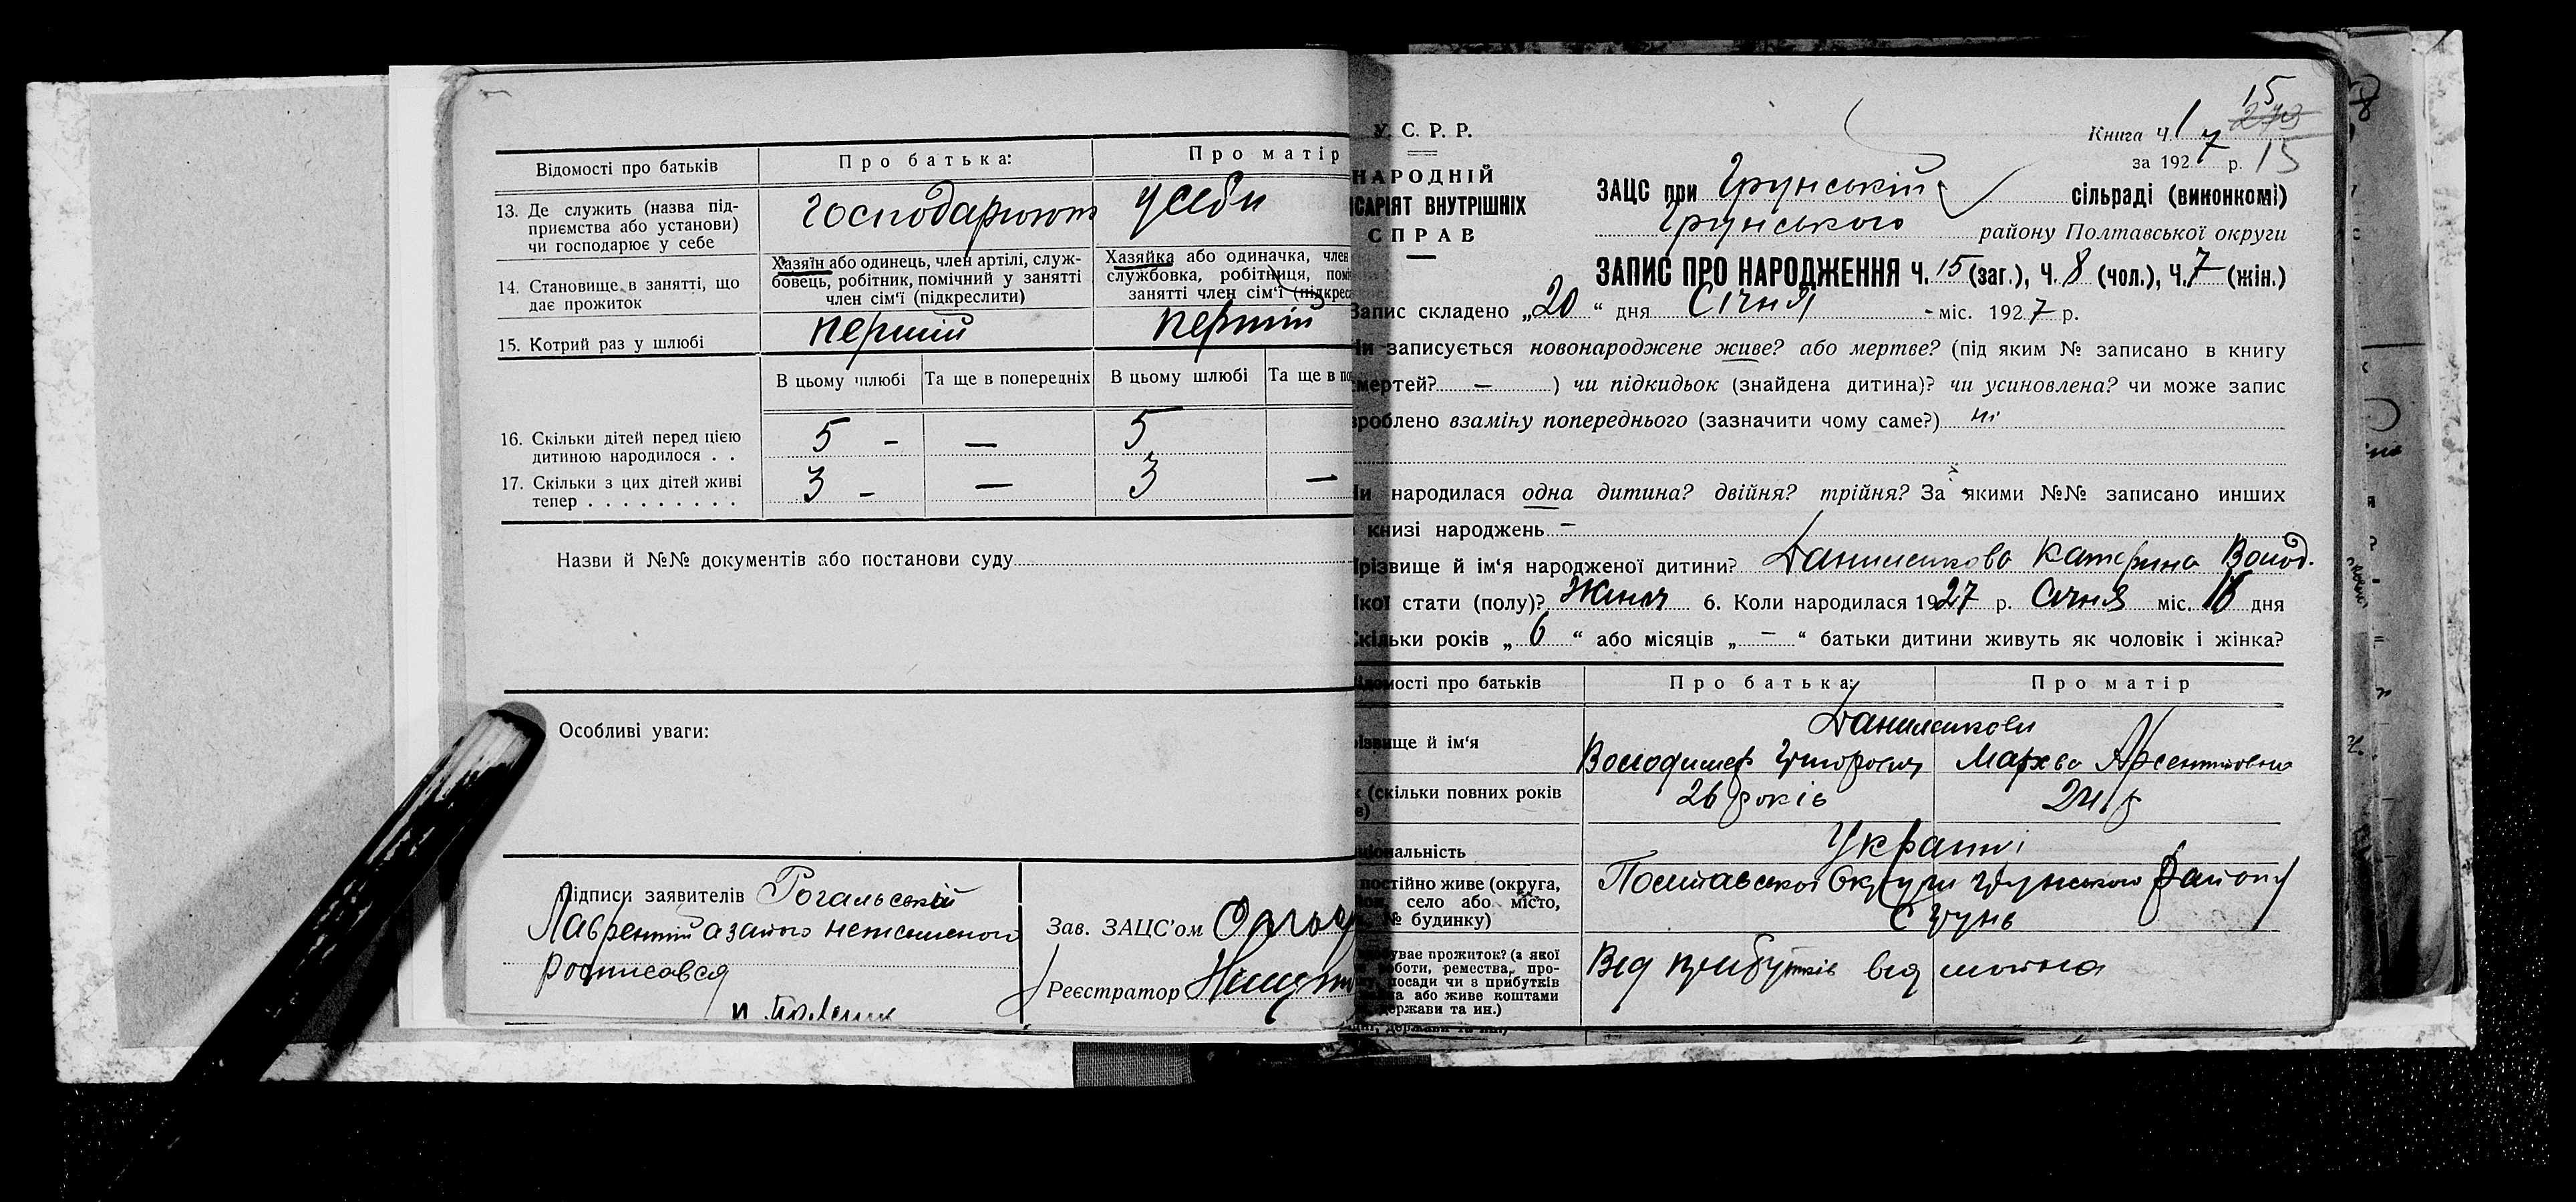 Відомості про батьків
Про батька:
Про матір
13. Де служить (назва під-
приємства або установи)
чи господарює у себе
господарюют
усеби
14. Становище в занятті, що
дає прожиток
Хазяїн або одинець, член артілі, служ-
бовець, робітник, помічний у занятті
член сім'ї (підкреслити)
Хазяйка або одиначка, член
службовка, робітниця, пом
занятті член сім'ї (підкрес
15. Котрий раз у шлюбі
перший
перший
В цьому шлюбі
Та ще в попередніх
В цьому шлюбі
Та ще в по
16. Скільки дітей перед цією
дитиною народилося . .
5 - — 5
17. Скільки з цих дітей живі
тепер . . . . . . . . .
3 - — 3 —
Назви й №№ документів або постанови суду
Особливі уваги:
Підписи заявителів Рогальський
Лаврентий а за його
росписався
Зав. ЗАЦС'ом
Реєстратор
15
У. С. Р. Р.
Книга Ч 1
за 1927 р. 15
НАРОДНІЙ
САРІЯТ ВНУТРІШНІХ
СПРАВ
ЗАЦС при Грунській сільраді (виконкомі)
Грунського району Полтавської округи
ЗАПИС ПРО НАРОДЖЕННЯ Ч. 15 (заг.), Ч. 8 (чол.), Ч. 7 (жін.)
Запис складено „20“ дня Січня - міс. 1927 р.
Чи записується новонароджене живе? або мертве? (під яким № записано в книгу
смертей? — ) чи підкидьок (знайдена дитина)? чи усиновлена? чи може запис
зроблено взаміну попереднього (зазначити чому саме?) ні
Чи народилася одна дитина? двійня? трійня? За якими №№ записано инших
книзі народжень —
Прізвище й ім'я народженої дитини? Даниликова Катерина Волод.
Якої стати (полу)? Жіноч 6. Коли народилася 1927 р. січня міс. 16 дня
Скільки років „6“ або місяців „—“ батьки дитини живуть як чоловік і жінка?
ідомості про батьків
Про батька:
Про матір
різвище й ім'я
Даниликови
Володимер Григорович
Мархва Арсентіовна
к (скільки повних років
26 років
24 р
ціональність
Українці
постійно живе (округа,
он, село або місто,
№ будинку)
Полтавської Округи Грунського Району
С Грунь
буває прожиток? (з якої
оботи, ремества, про-
посади чи з прибутків
на або живе коштами
держави та ин.)
Від прибутків від майна